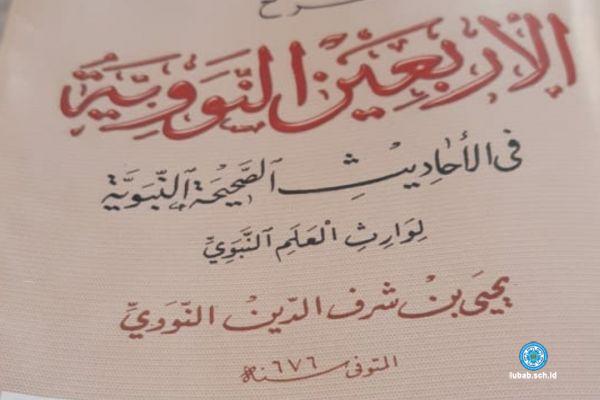 شرح
الأربعين النووية
في الأحاديث الصحيحة النبوية
لوارث العلم النبوي
يحيى بن شرف الدين النووي
المتوفى سنة ٦٧٦ هـ
lubab.sch.id